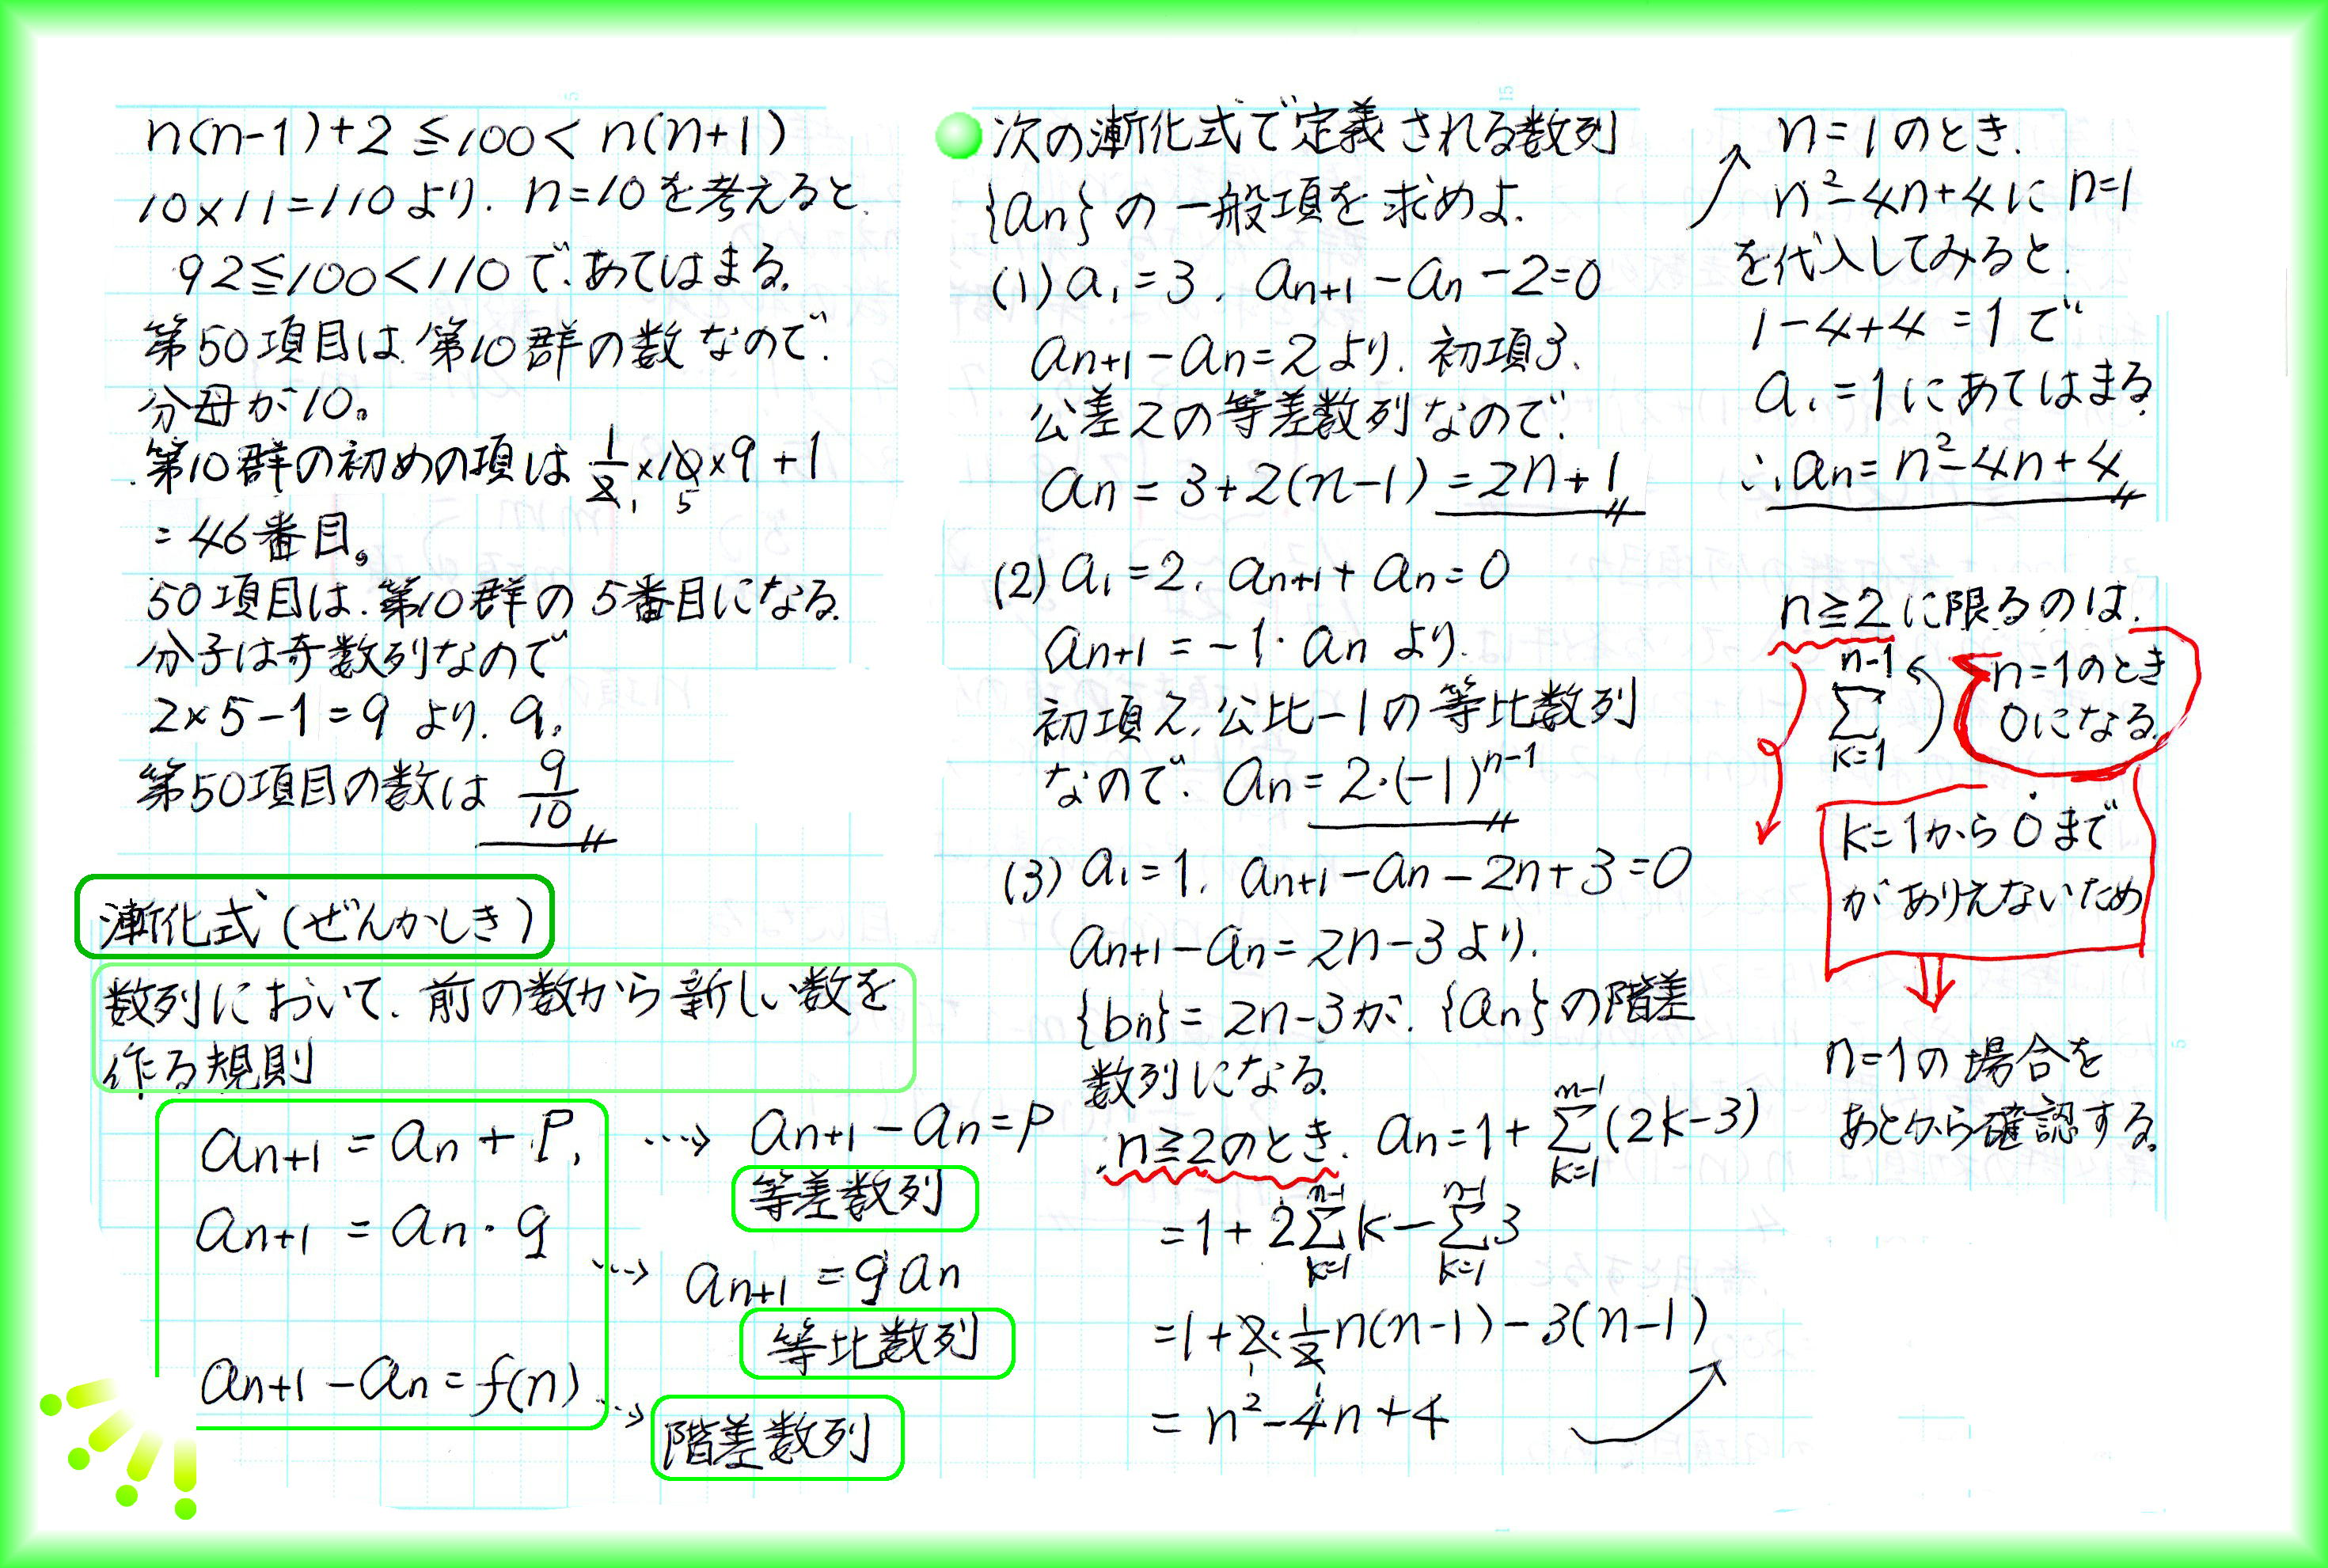 n(n-1)+2 ≦100< n(n+1)
10×11=110より. n=10を考えると.
92≦100<110で、あてはまる。
第50項目は.第10群の数なので.
分母が10。
第10群の初めの項は 1/2×10×9+1
1 5
=46番目。
50項目は.第10群の5番目になる.
分子は奇数列なので
2×5-1=9より. 9。
第50項目の数は 9/10
漸化式(ぜんかしき)
数列において. 前の数から新しい数を
作る規則
an+1 = an + P. …→ an+1 - an = P
等差数列
an+1 = an・q …→ an+1 = q an
等比数列
an+1 - an = f(n) …→ 階差数列
次の漸化式で定義される数列
{an}の一般項を求めよ.
(1) a1=3. an+1-an-2=0
an+1-an=2より. 初項3.
公差2の等差数列なので.
an = 3+2(n-1) =2n+1
(2) a1=2. an+1+an=0
an+1 = -1・an より.
初項2. 公比-1の等比数列
なので. an = 2・(-1)^n-1
(3) a1=1. an+1-an-2n+3=0
an+1-an=2n-3より.
{bn}=2n-3が. {an}の階差
数列になる.
n≧2のとき. an=1+ n-1 Σ k=1 (2k-3)
=1+2 n-1 Σ k=1 k- n-1 Σ k=1 3
=1+2・1/2 n(n-1)-3(n-1)
1 1
= n²-4n+4
n=1のとき.
n²-4n+4に n=1
を代入してみると.
1-4+4=1で
a1=1にあてはまる.
∴an=n²-4n+4
n≧2に限るのは.
n-1 Σ k=1
n=1のとき
0になる.
k=1から0まで
がありえないため
n=1の場合を
あとから確認する。